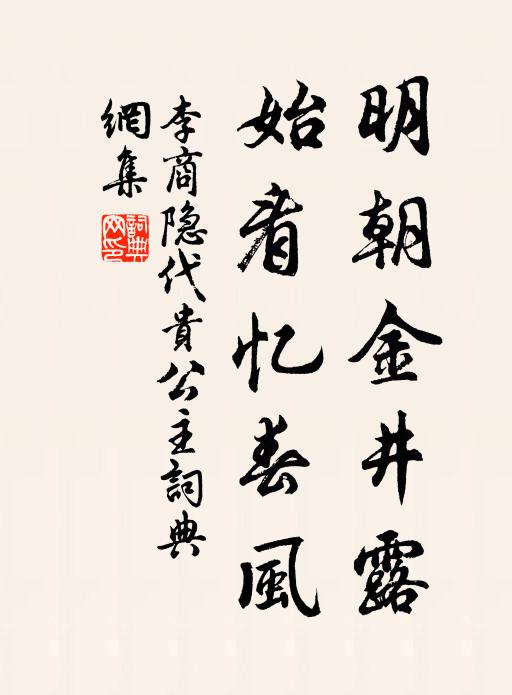 明朝金井露
始看忆春風
李商隐代貴公主詞典
網集
詞典
网印